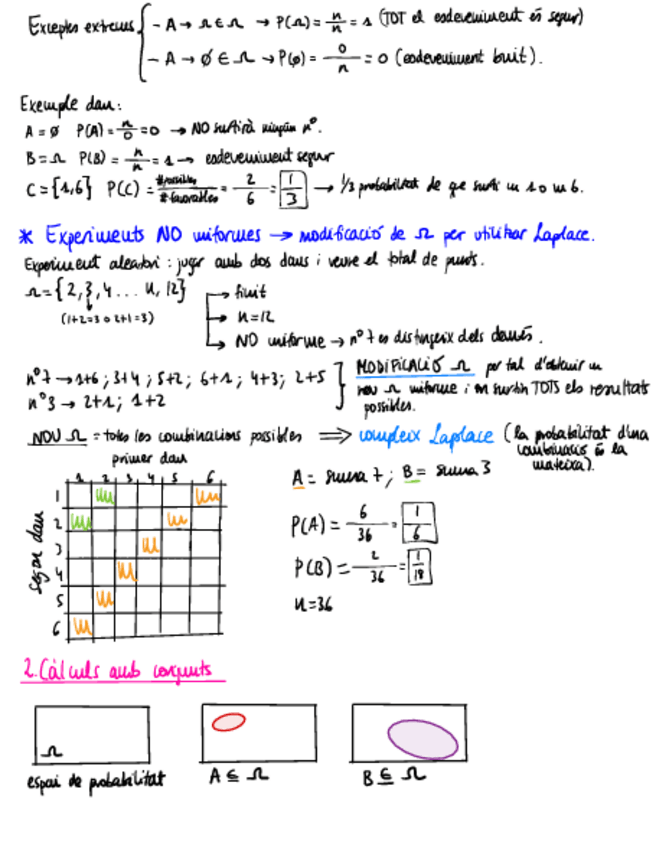 Exceples extrems { - A → Ω ∈ Ω → P(Ω) = n/n = 1 (TOT el esdeveniment és segur)
- A → Ø ∈ Ω → P(Ø) = 0/n = 0 (esdeveniment buit).
Exemple dau:
A = Ø P(A) = n/0 = 0 → NO sortirà ningún nº.
B = Ω P(B) = n/n = 1 → esdeveniment segur
C = {1,6} P(C) = #possibles/#favorables = 2/6 = 1/3 → 1/3 probabilitat de que surti un 1 o un 6.
* Experiments NO uniformes → modificació de Ω per utilitzar Laplace.
Experiment aleatori: jugar amb dos daus i veure el total de punts.
Ω = {2, 3, 4 ... 11, 12} → finit
(1+2=3 o 2+1=3) → n=12
→ NO uniforme → nº7 es distingeix dels demés.
nº7 → 1+6; 3+4; 5+2; 6+1; 4+3; 2+5
nº3 → 2+1; 1+2
MODIFICACIÓ Ω per tal d'obtenir un
nou Ω uniforme i on surtin TOTS els resultats
possibles.
NOU Ω = totes les combinacions possibles ⟹ compleix Laplace (la probabilitat d'una
combinació és la
mateixa).
primer dau
1 2 3 4 5 6
segon dau
1
2
3
4
5
6
A = suma 7; B = suma 3
P(A) = 6/36 = 1/6
P(B) = 2/36 = 1/18
n=36
2. Càlculs amb conjunts
Ω
espai de probabilitat A ⊆ Ω B ⊆ Ω